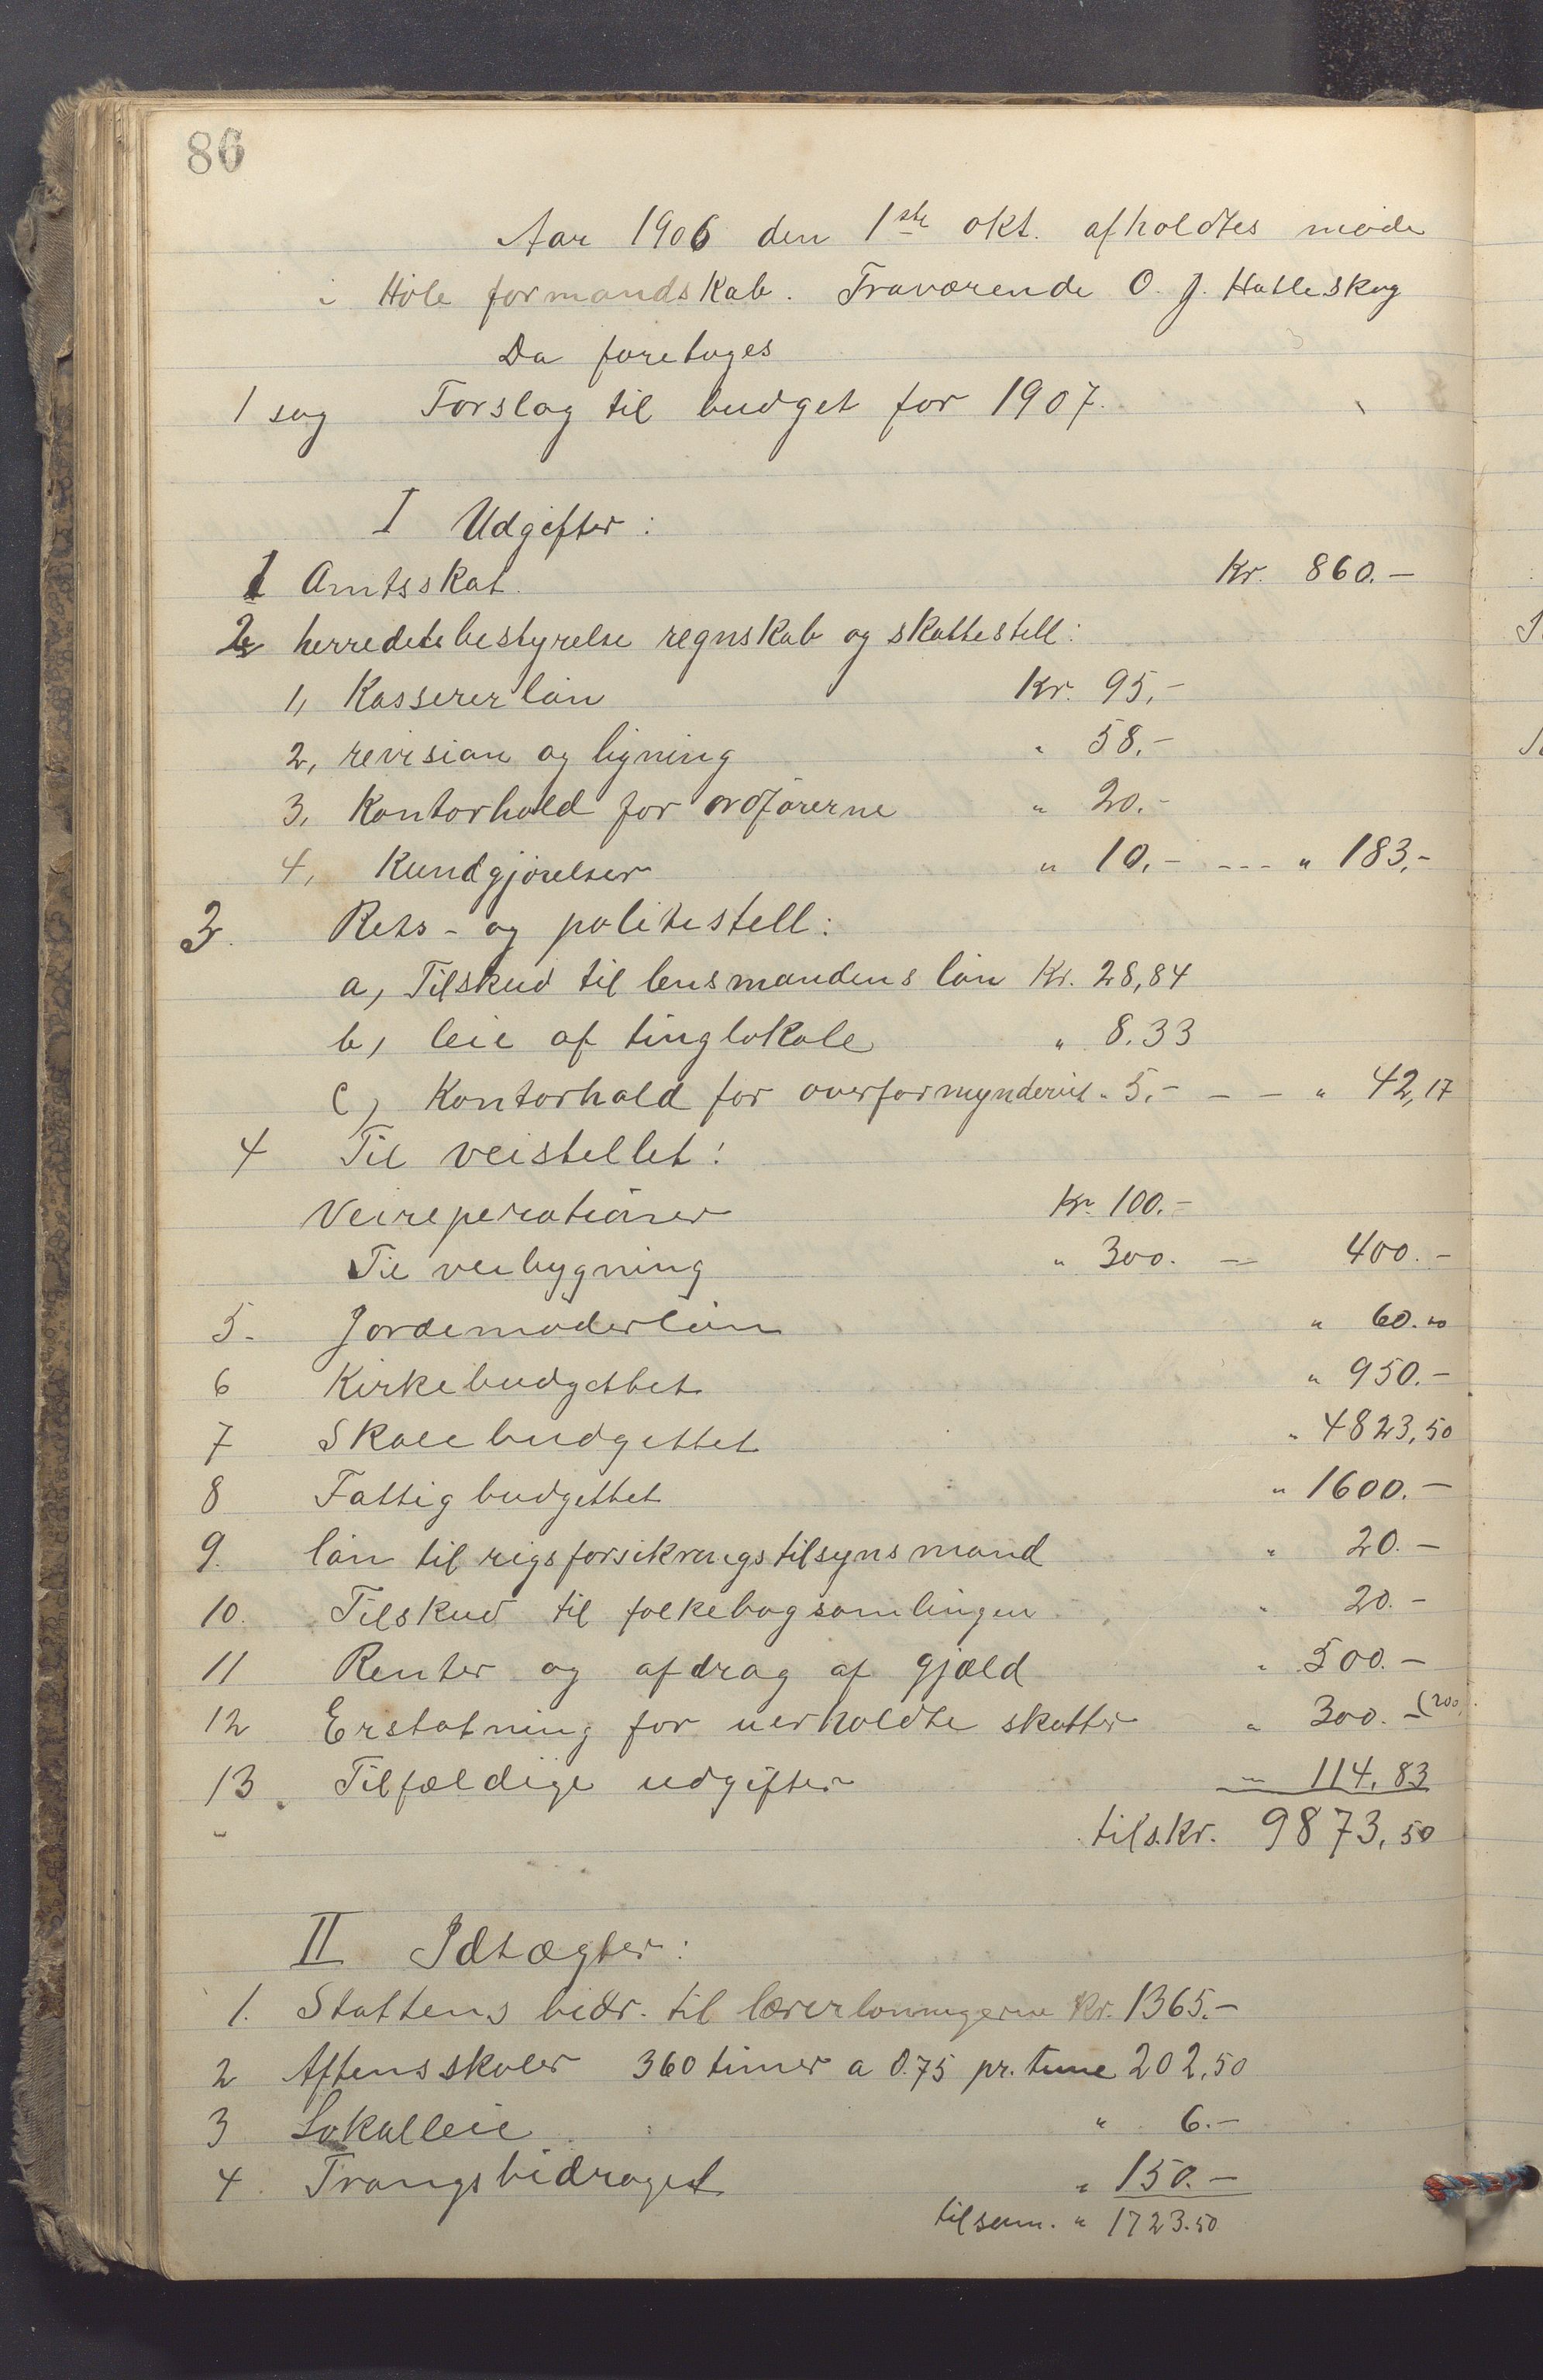 86
Aar 1906 den 1ste okt. afholdtes møde
i Høle formandskab. Fraværende O. J. Hatleskog
Da foretoges
1 sag Forslag til budget for 1907.
I Udgifter:
1 Amtsskat. Kr. 860.—
2 herredetsbestyrelse regnskab og skattestell:
1, Kassererløn Kr. 95,-
2, revision og ligning " 58,-
3, Kontorhold for ordførerne " 20.-
4, Kundgjørelser " 10,- --- " 183,-
3. Rets- og politistell:
a, Tilskud til lensmandens løn Kr. 28,84
b, leie af tinglokale " 8.33
c, Kontorhold for overformynderiet " 5,- — — " 42,17
4 Til veistellet:
Veireperationer Kr 100.-
Til veibygning " 300. — 400.-
5. Jordemoderløn " 60.00
6 Kirkebudgettet " 950.—
7 Skolebudgettet " 4823,50
8 Fattigbudgettet " 1600.—
9. løn til rigsforsikringstilsynsmand " 20.—
10. Tilskud til folkebogsamlingen " 20.-
11 Renter og afdrag af gjæld " 500.—
12 Erstatning for uerholdte skatter " 300.- (200)
13. Tilfældige udgifter — 114,83
tils. kr. 9873,50
II Idtægter:
1. Stattens bidr. til lærerlønningerne Kr. 1365.—
2 Aftensskoler 360 timer a 0.75 pr. time 202,50
3 Lokalleie " 6.—
4. Trangsbidraget " 150.—
tilsam. " 1723.50